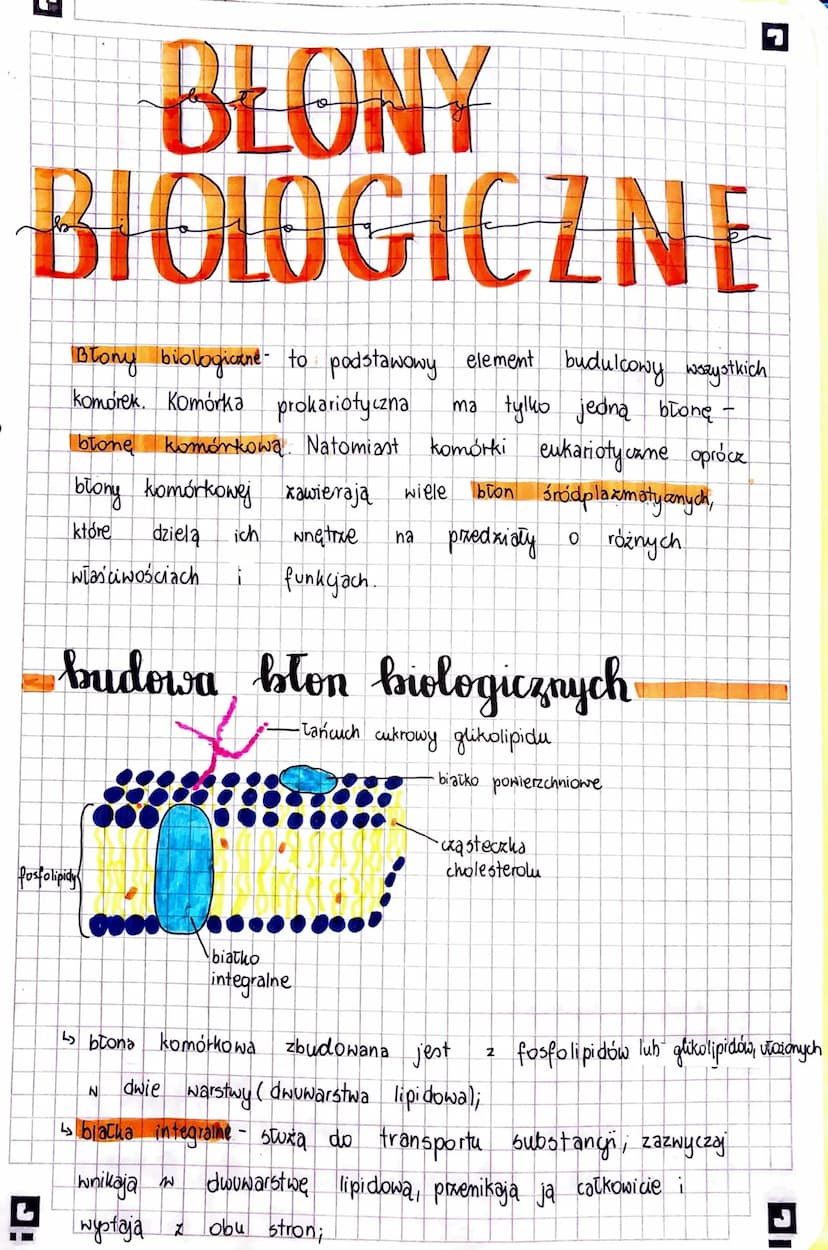 BŁONY
błony
BIOLOGICZNE
biologiczne
Błony biologiczne - to podstawowy element budulcowy wszystkich
komórek. Komórka prokariotyczna ma tylko jedną błonę -
błonę komórkową. Natomiast komórki eukariotyczne oprócz
błony komórkowej zawierają wiele błon śródplazmatycznych,
które dzielą ich wnętrze na przedziały o różnych
właściwościach i funkcjach.
budowa błon biologicznych
łańcuch cukrowy glikolipidu
białko powierzchniowe
cząsteczka
cholesterolu
fosfolipidy
białko
integralne
↳ błona komórkowa zbudowana jest z fosfolipidów lub glikolipidów, ułożonych
w dwie warstwy (dwuwarstwa lipidowa);
↳ białka integralne - służą do transportu substancji, zazwyczaj
wnikają w dwuwarstwę lipidową, przenikają ją całkowicie i
wystają z obu stron;